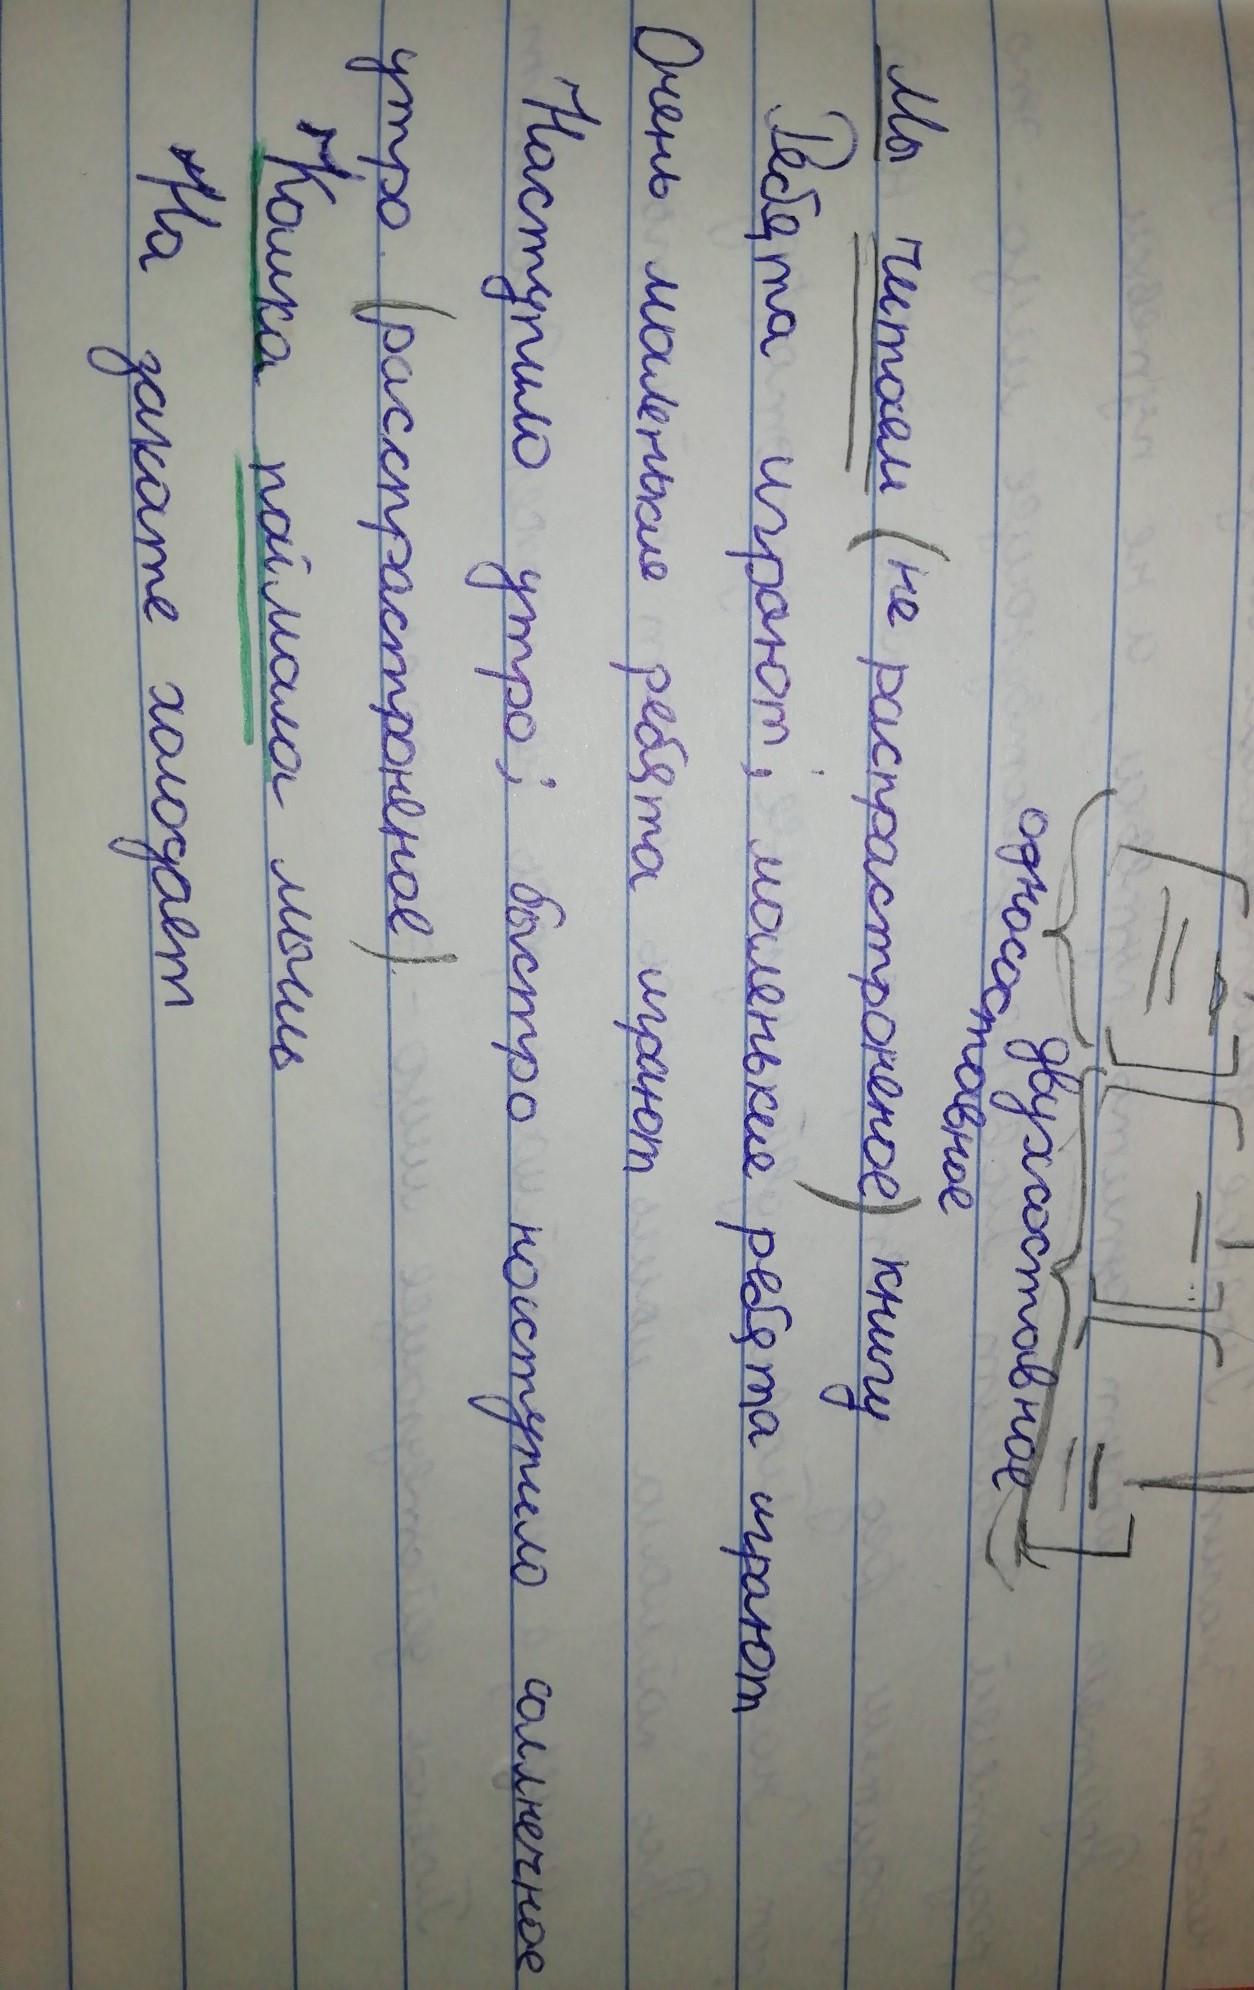 двухсоставное
односоставное
Мы читаем (не распрастроненое) книгу
Ребята играют; маленькие ребята играют
Очень маленькие ребята играют
Наступило утро; быстро наступило солнечное
утро. (распрастроненое).
Кошка паймала мышь
На закате холодает